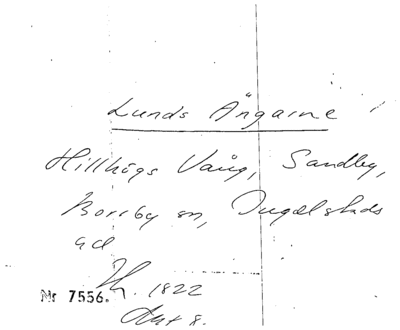 Lunds Ängarne
Hillhögs Vång, Sandby,
Borrby sn, Ingelstads
hd
Nr 7556. 1822
Akt 8.